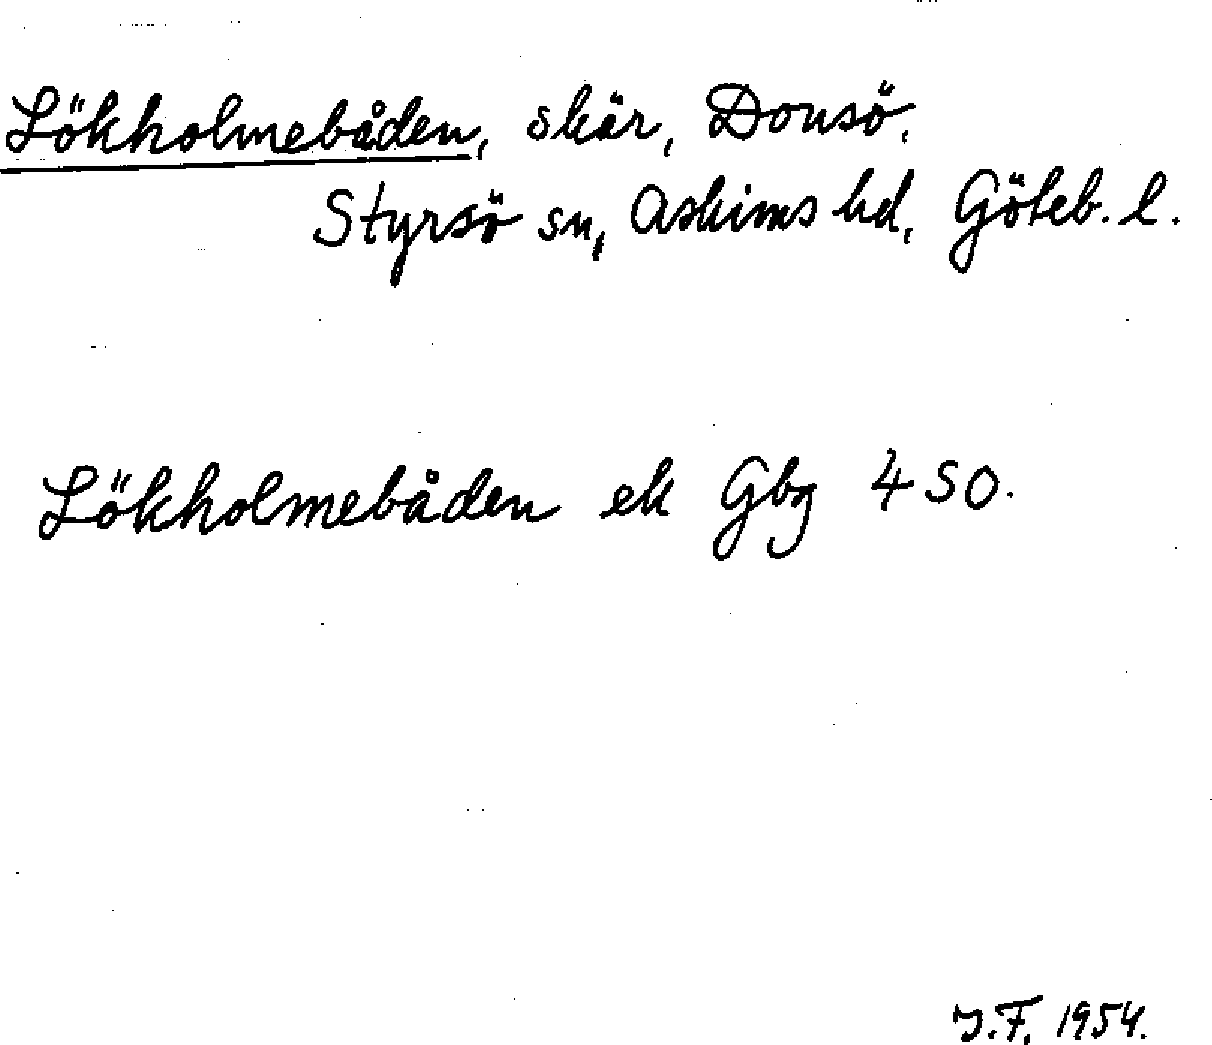 Lökholmebåden, skär, Donsö,
Styrsö sn, Askims hd, Göteb. l.
Lökholmebåden ek Gbg 450.
J.F. 1954.